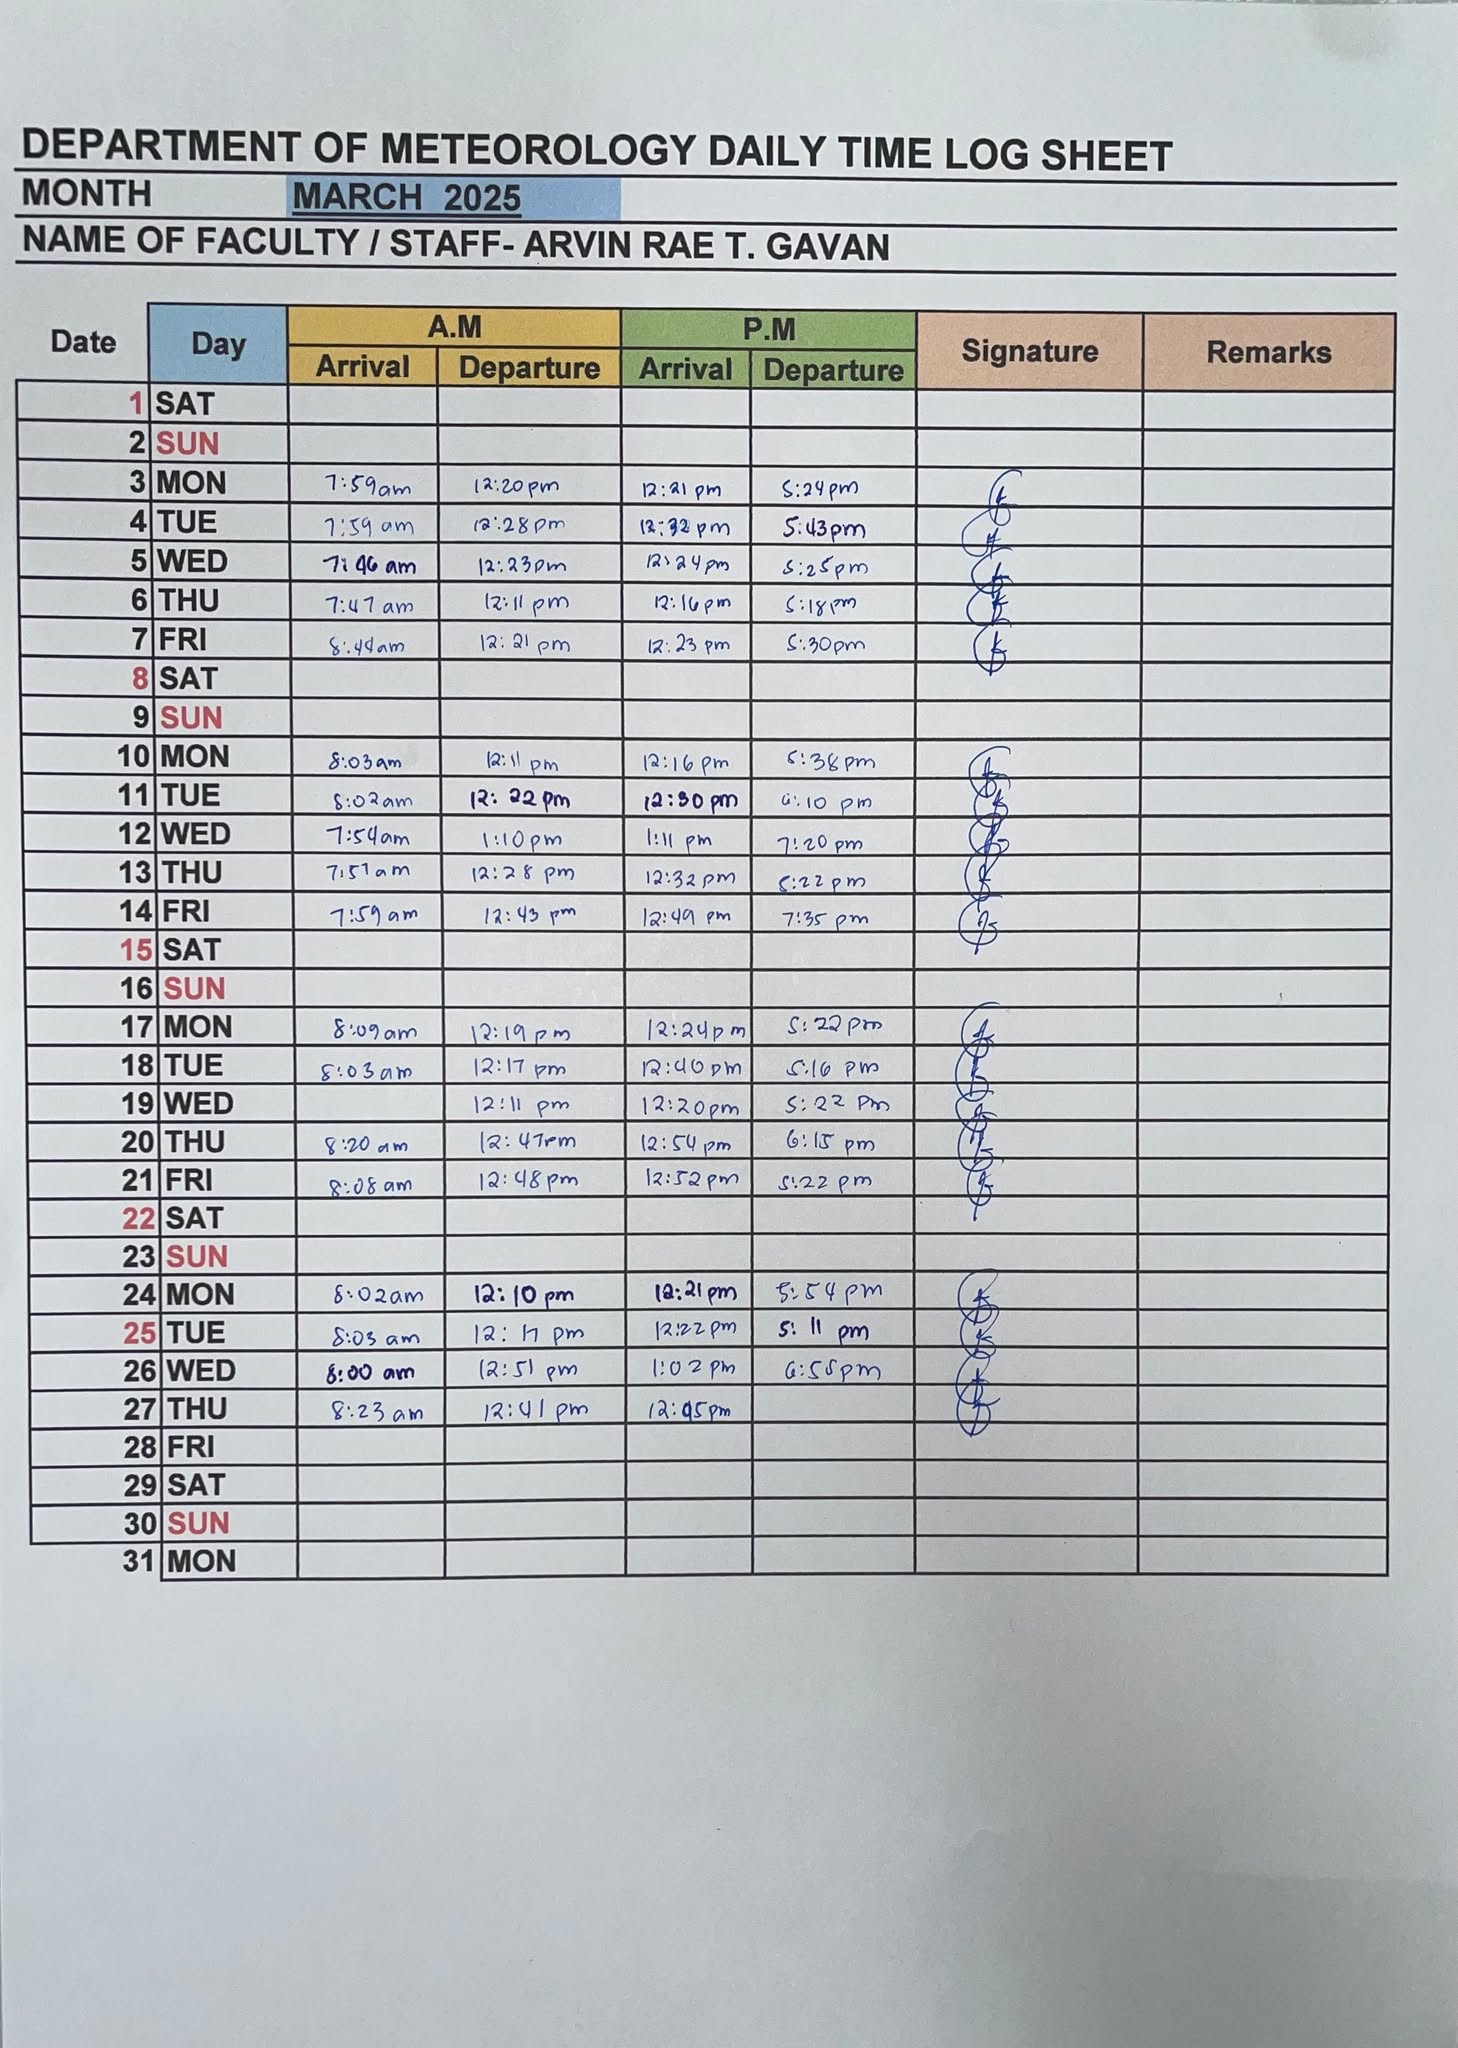 DEPARTMENT OF METEOROLOGY DAILY TIME LOG SHEET
MONTH MARCH 2025
NAME OF FACULTY / STAFF- ARVIN RAE T. GAVAN
Date Day A.M P.M Signature Remarks
Arrival Departure Arrival Departure
1 SAT
2 SUN
3 MON 7:59am 12:20pm 12:21 pm 5:24pm
4 TUE 7:59 am 12:28pm 12:32 pm 5:43pm
5 WED 7:46 am 12:23pm 12:24pm 5:25pm
6 THU 7:47 am 12:11 pm 12:16pm 5:18pm
7 FRI 8:44am 12:21 pm 12:23 pm 5:30pm
8 SAT
9 SUN
10 MON 8:03am 12:11 pm 12:16 pm 5:38pm
11 TUE 8:02am 12:22 pm 12:30 pm 6:10 pm
12 WED 7:54am 1:10pm 1:11 pm 7:20 pm
13 THU 7:57am 12:28 pm 12:32 pm 5:22 pm
14 FRI 7:59am 12:43 pm 12:49 pm 7:35 pm
15 SAT
16 SUN
17 MON 8:09am 12:19 pm 12:24pm 5:22pm
18 TUE 8:03am 12:17 pm 12:40pm 5:16 pm
19 WED 12:11 pm 12:20pm 5:22 pm
20 THU 8:20 am 12:47pm 12:54 pm 6:15 pm
21 FRI 8:08am 12:48pm 12:52pm 5:22 pm
22 SAT
23 SUN
24 MON 8:02am 12:10 pm 12:21pm 5:54 pm
25 TUE 8:03 am 12:17 pm 12:22pm 5:11 pm
26 WED 8:00 am 12:51 pm 1:02 pm 6:58pm
27 THU 8:23 am 12:41 pm 12:45pm
28 FRI
29 SAT
30 SUN
31 MON